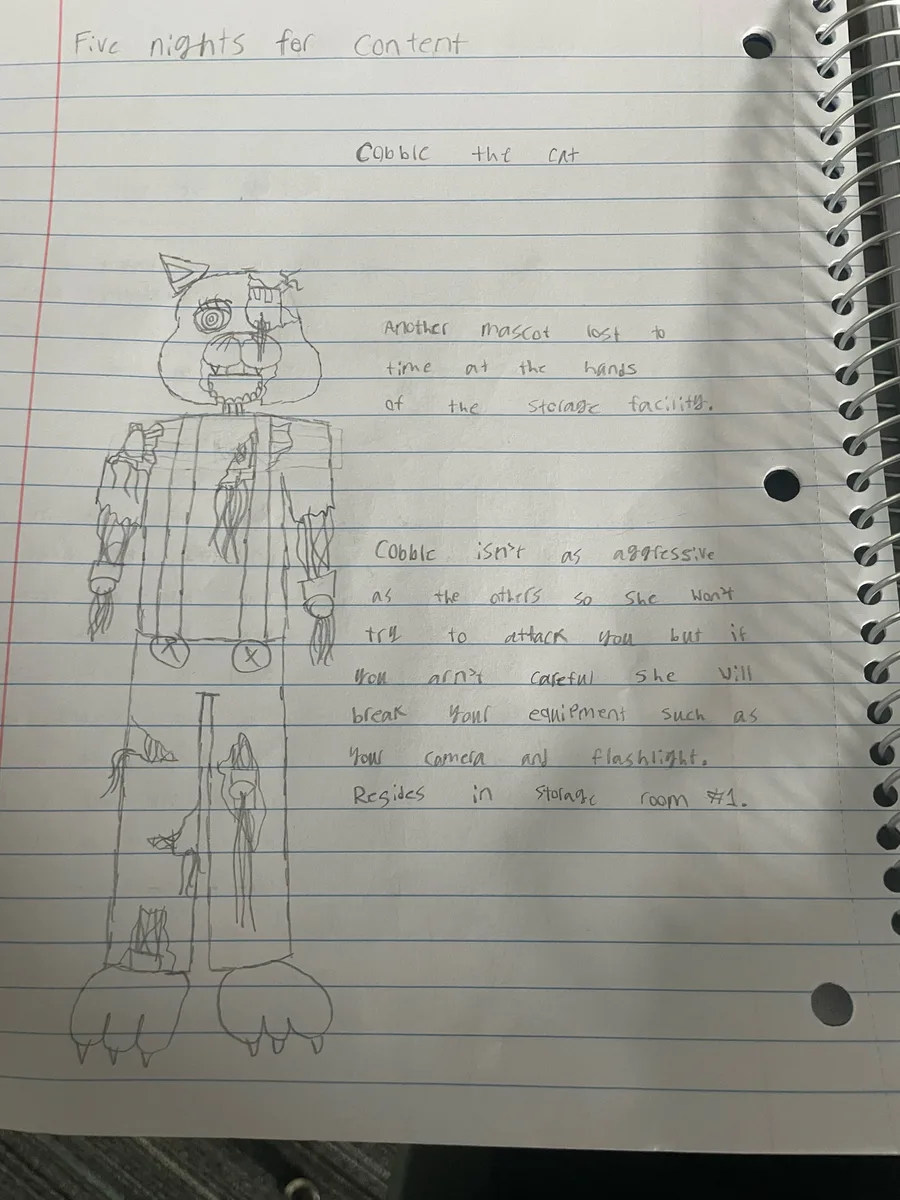 Five nights for content
Cobble the cat
Another mascot lost to
time at the hands
of the storage facility.
Cobble isn't as aggressive
as the others so she won't
try to attack you but if
you arn't careful she will
break your equipment such as
your camera and flashlight.
Resides in storage room #1.